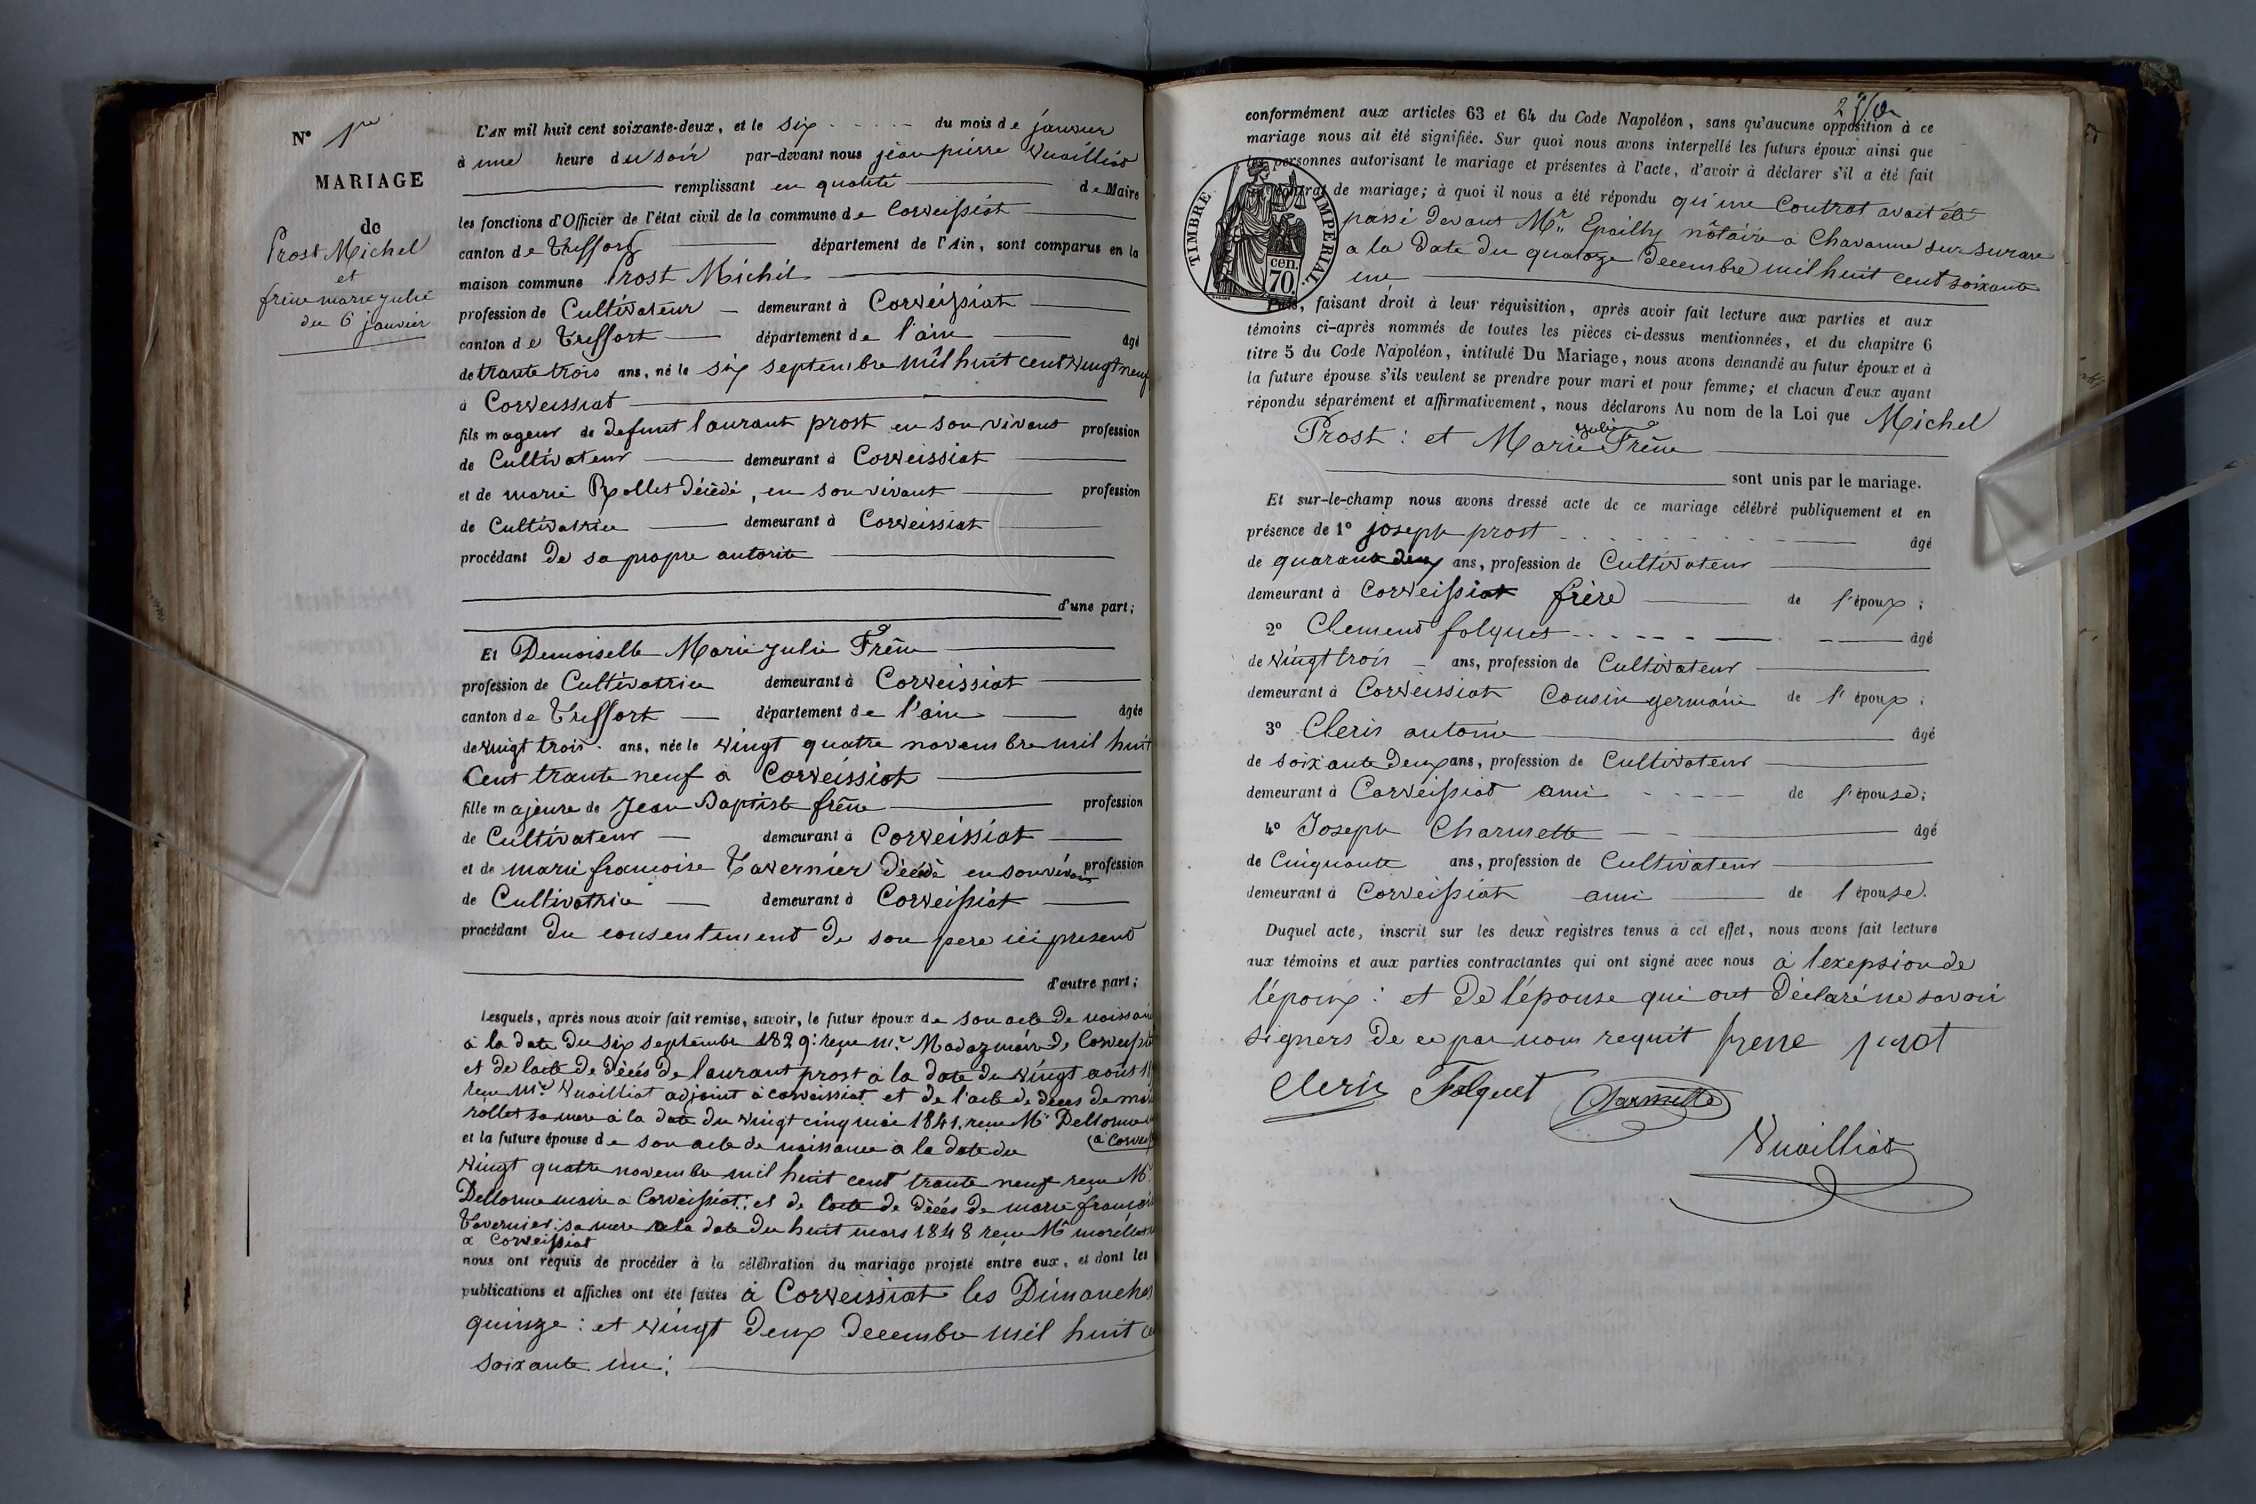 N° 1re
MARIAGE
de
Prost Michel
et
frêne marie julie
du 6 janvier
L'AN mil huit cent soixante-deux, et le six - - - - - du mois de janvier
à une heure du soir par-devant nous jean pierre Vuailliat
remplissant en qualité de Maire
les fonctions d'Officier de l'état civil de la commune de Corveissiat
canton de Treffort département de l'Ain, sont comparus en la
maison commune Prost Michel
profession de Cultivateur demeurant à Corveissiat
canton de Treffort département de l'ain âgé
de trante trois ans, né le six septembre mil huit cent vingt neuf
à Corveissiat
fils mageur de defunt laurant prost en son vivant profession
de Cultivateur demeurant à Corveissiat
et de marie Rollet décédé, en son vivant profession
de Cultivatrice demeurant à Corveissiat
procédant de sa propre autorite
d'une part;
Et Demoiselle Marie julie Frêne
profession de Cultivatrice demeurant à Corveissiat
canton de Treffort département de l'ain âgée
de vingt trois ans, née le vingt quatre novembre mil huit
Cent trante neuf a Corveissiat
fille majeure de Jean Baptiste frêne profession
de Cultivateur demeurant à Corveissiat
et de marie francoise Tavernier décédé en son vivant profession
de Cultivatrice demeurant à Corveissiat
procédant du consentement de son pere ici present
d'autre part;
Lesquels, après nous avoir fait remise, savoir, le futur époux de son acte de naissance
a la date du six septembre 1829: reçu Mr Madaz maire de
et de l'acte de décés de laurant prost a la date du vingt août
reçu Mr Vuailliat adjoint à corveissiat et de l'acte de deces de
rollet sa mere a la date du vingt cinq mai 1841. reçu Mr Dellorme
et la future épouse de son acte de naissance a la date du
vingt quatre novembre mil huit cent trante neuf reçu Mr
Dellorme maire a Corveissiat; et de l'acte de décés de marie
Tavernier sa mere a la date du huit mars 1848 reçu Mr
a Corveissiat
nous ont requis de procéder à la célébration du mariage projeté entre eux, et dont les
publications et affiches ont été faites à Corveissiat les Dimanches
quinze: et vingt deux decembre mil huit
soixante un;
conformément aux articles 63 et 64 du Code Napoléon, sans qu'aucune opposition à ce
mariage nous ait été signifiée. Sur quoi nous avons interpellé les futurs époux ainsi que
les personnes autorisant le mariage et présentes à l'acte, d'avoir à déclarer s'il a été fait
contrat de mariage; à quoi il nous a été répondu qu'une Contrat avait été
passé devant Mr Epailly nôtaire a Chavanne sur surare
a la date du quatoze decembre mil huit cent soixante
une
TIMBRE IMPERIAL.
cen.
70.
Puis, faisant droit à leur réquisition, après avoir fait lecture aux parties et aux
témoins ci-après nommés de toutes les pièces ci-dessus mentionnées, et du chapitre 6
titre 5 du Code Napoléon, intitulé Du Mariage, nous avons demandé au futur époux et à
la future épouse s'ils veulent se prendre pour mari et pour femme; et chacun d'eux ayant
répondu séparément et affirmativement, nous déclarons Au nom de la Loi que Michel
Prost: et Marie julie Frêne
sont unis par le mariage.
Et sur-le-champ nous avons dressé acte de ce mariage célébré publiquement et en
présence de 1° joseph prost âgé
de quarante deux ans, profession de Cultivateur
demeurant à Corveissiat frère de l'époux;
2° Clement folquet âgé
de vingt trois ans, profession de Cultivateur
demeurant à Corveissiat Cousin germain de l'époux;
3° Cleris antoine âgé
de soixante deux ans, profession de Cultivateur
demeurant à Corveissiat ami de l'épouse;
4° Joseph Charmette âgé
de Cinquante ans, profession de Cultivateur
demeurant à Corveissiat ami de l'épouse.
Duquel acte, inscrit sur les deux registres tenus à cet effet, nous avons fait lecture
aux témoins et aux parties contractantes qui ont signé avec nous à l'exepsion de
l'époux: et de l'épouse qui ont déclaré ne savoir
signers de ce par nous requit frene prost
Cleris Folquet Charmette
Vuailliat